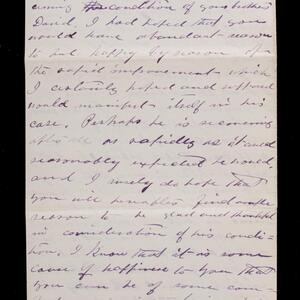 condition of your brother
David, I had hoped that you
would have abundant reason
to feel happy by reason of
the rapid improvement which
I certainly hoped and supposed
would manifest itself in his
case. Perhaps he is recovering
as rapidly as it could
reasonably expected he would,
and I surely do hope that
you will find
reason to be glad and thankful
in consideration of his condi-
tion. I know that it is some
cause of happiness to you that
you can be of some com-